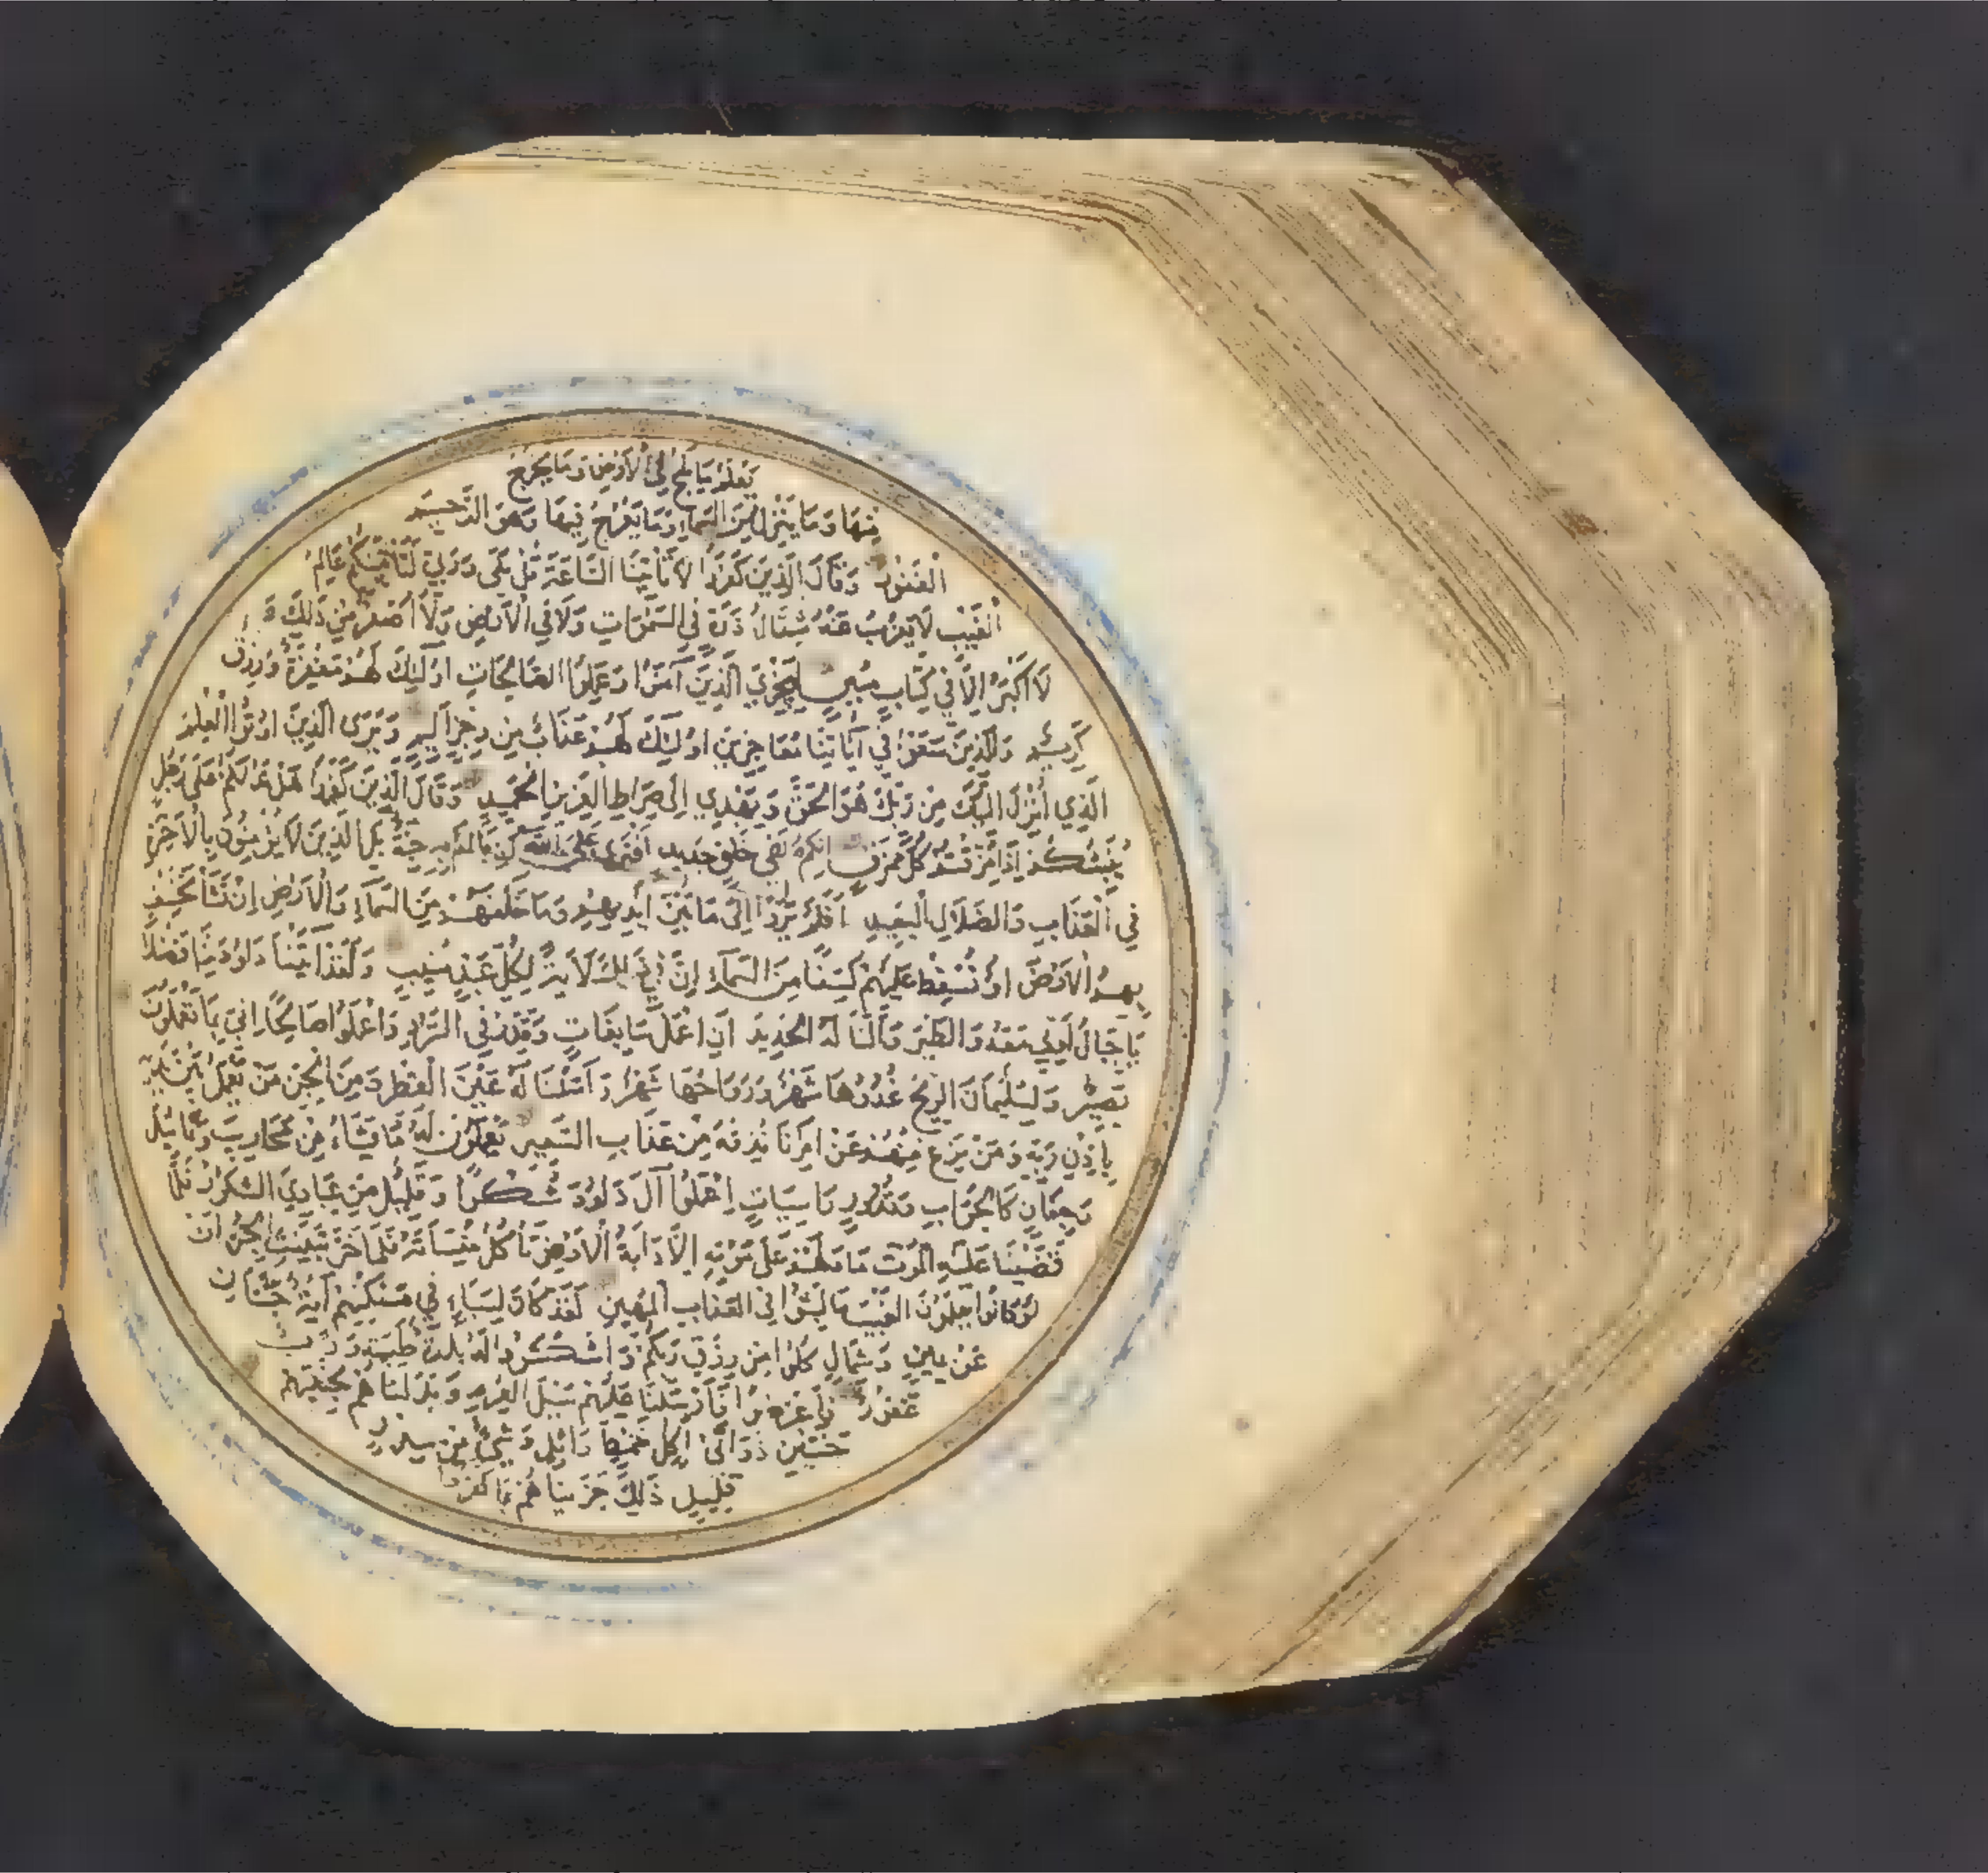 يَعْلَمُ مَا يَلِجُ فِي الْاَرْضِ وَمَا يَخْرُجُ
مِنْهَا وَمَا يَنْزِلُ مِنَ السَّمَاءِ وَمَا يَعْرُجُ فِيهَا وَهُوَ الرَّحِيمُ
الْغَفُورُ وَقَالَ الَّذِينَ كَفَرُوا لَا تَأْتِينَا السَّاعَةُ قُلْ بَلَى وَرَبِّي لَتَأْتِيَنَّكُمْ عَالِمِ
الْغَيْبِ لَا يَعْزُبُ عَنْهُ مِثْقَالُ ذَرَّةٍ فِي السَّمٰوَاتِ وَلَا فِي الْاَرْضِ وَلَا اَصْغَرُ مِنْ ذٰلِكَ وَ
لَا اَكْبَرُ اِلَّا فِي كِتَابٍ مُبِينٍ لِيَجْزِيَ الَّذِينَ آمَنُوا وَعَمِلُوا الصَّالِحَاتِ اُولٰئِكَ لَهُمْ مَغْفِرَةٌ وَرِزْقٌ
كَرِيمٌ وَالَّذِينَ سَعَوْا فِي آيَاتِنَا مُعَاجِزِينَ اُولٰئِكَ لَهُمْ عَذَابٌ مِنْ رِجْزٍ اَلِيمٍ وَيَرَى الَّذِينَ اُوتُوا الْعِلْمَ
الَّذِي اُنْزِلَ اِلَيْكَ مِنْ رَبِّكَ هُوَ الْحَقَّ وَيَهْدِي اِلَى صِرَاطِ الْعَزِيزِ الْحَمِيدِ وَقَالَ الَّذِينَ كَفَرُوا هَلْ نَدُلُّكُمْ عَلَى رَجُلٍ
يُنَبِّئُكُمْ اِذَا مُزِّقْتُمْ كُلَّ مُمَزَّقٍ اِنَّكُمْ لَفِي خَلْقٍ جَدِيدٍ اَفْتَرَى عَلَى اللّٰهِ كَذِبًا اَمْ بِهِ جِنَّةٌ بَلِ الَّذِينَ لَا يُؤْمِنُونَ بِالْآخِرَةِ
فِي الْعَذَابِ وَالضَّلَالِ الْبَعِيدِ اَفَلَمْ يَرَوْا اِلَى مَا بَيْنَ اَيْدِيهِمْ وَمَا خَلْفَهُمْ مِنَ السَّمَاءِ وَالْاَرْضِ اِنْ نَشَأْ نَخْسِفْ
بِهِمُ الْاَرْضَ اَوْ نُسْقِطْ عَلَيْهِمْ كِسَفًا مِنَ السَّمَاءِ اِنَّ فِي ذٰلِكَ لَآيَةً لِكُلِّ عَبْدٍ مُنِيبٍ وَلَقَدْ آتَيْنَا دَاوُدَ مِنَّا فَضْلًا
يَا جِبَالُ اَوِّبِي مَعَهُ وَالطَّيْرَ وَاَلَنَّا لَهُ الْحَدِيدَ اَنِ اعْمَلْ سَابِغَاتٍ وَقَدِّرْ فِي السَّرْدِ وَاعْمَلُوا صَالِحًا اِنِّي بِمَا تَعْمَلُونَ
بَصِيرٌ وَلِسُلَيْمَانَ الرِّيحَ غُدُوُّهَا شَهْرٌ وَرَوَاحُهَا شَهْرٌ وَاَسَلْنَا لَهُ عَيْنَ الْقِطْرِ وَمِنَ الْجِنِّ مَنْ يَعْمَلُ بَيْنَ يَدَيْهِ
بِاِذْنِ رَبِّهِ وَمَنْ يَزِغْ مِنْهُمْ عَنْ اَمْرِنَا نُذِقْهُ مِنْ عَذَابِ السَّعِيرِ يَعْمَلُونَ لَهُ مَا يَشَاءُ مِنْ مَحَارِيبَ وَتَمَاثِيلَ
وَجِفَانٍ كَالْجَوَابِ وَقُدُورٍ رَاسِيَاتٍ اِعْمَلُوا آلَ دَاوُدَ شُكْرًا وَقَلِيلٌ مِنْ عِبَادِيَ الشَّكُورُ فَلَمَّا
قَضَيْنَا عَلَيْهِ الْمَوْتَ مَا دَلَّهُمْ عَلَى مَوْتِهِ اِلَّا دَابَّةُ الْاَرْضِ تَأْكُلُ مِنْسَأَتَهُ فَلَمَّا خَرَّ تَبَيَّنَتِ الْجِنُّ اَنْ
لَوْ كَانُوا يَعْلَمُونَ الْغَيْبَ مَا لَبِثُوا فِي الْعَذَابِ الْمُهِينِ لَقَدْ كَانَ لِسَبَاءٍ فِي مَسْكَنِهِمْ آيَةٌ جَنَّتَانِ
عَنْ يَمِينٍ وَشِمَالٍ كُلُوا مِنْ رِزْقِ رَبِّكُمْ وَاشْكُرُوا لَهُ بَلْدَةٌ طَيِّبَةٌ وَرَبٌّ
غَفُورٌ فَاَعْرَضُوا فَاَرْسَلْنَا عَلَيْهِمْ سَيْلَ الْعَرِمِ وَبَدَّلْنَاهُمْ بِجَنَّتَيْهِمْ
جَنَّتَيْنِ ذَوَاتَيْ اُكُلٍ خَمْطٍ وَاَثْلٍ وَشَيْءٍ مِنْ سِدْرٍ
قَلِيلٍ ذٰلِكَ جَزَيْنَاهُمْ بِمَا كَفَرُوا